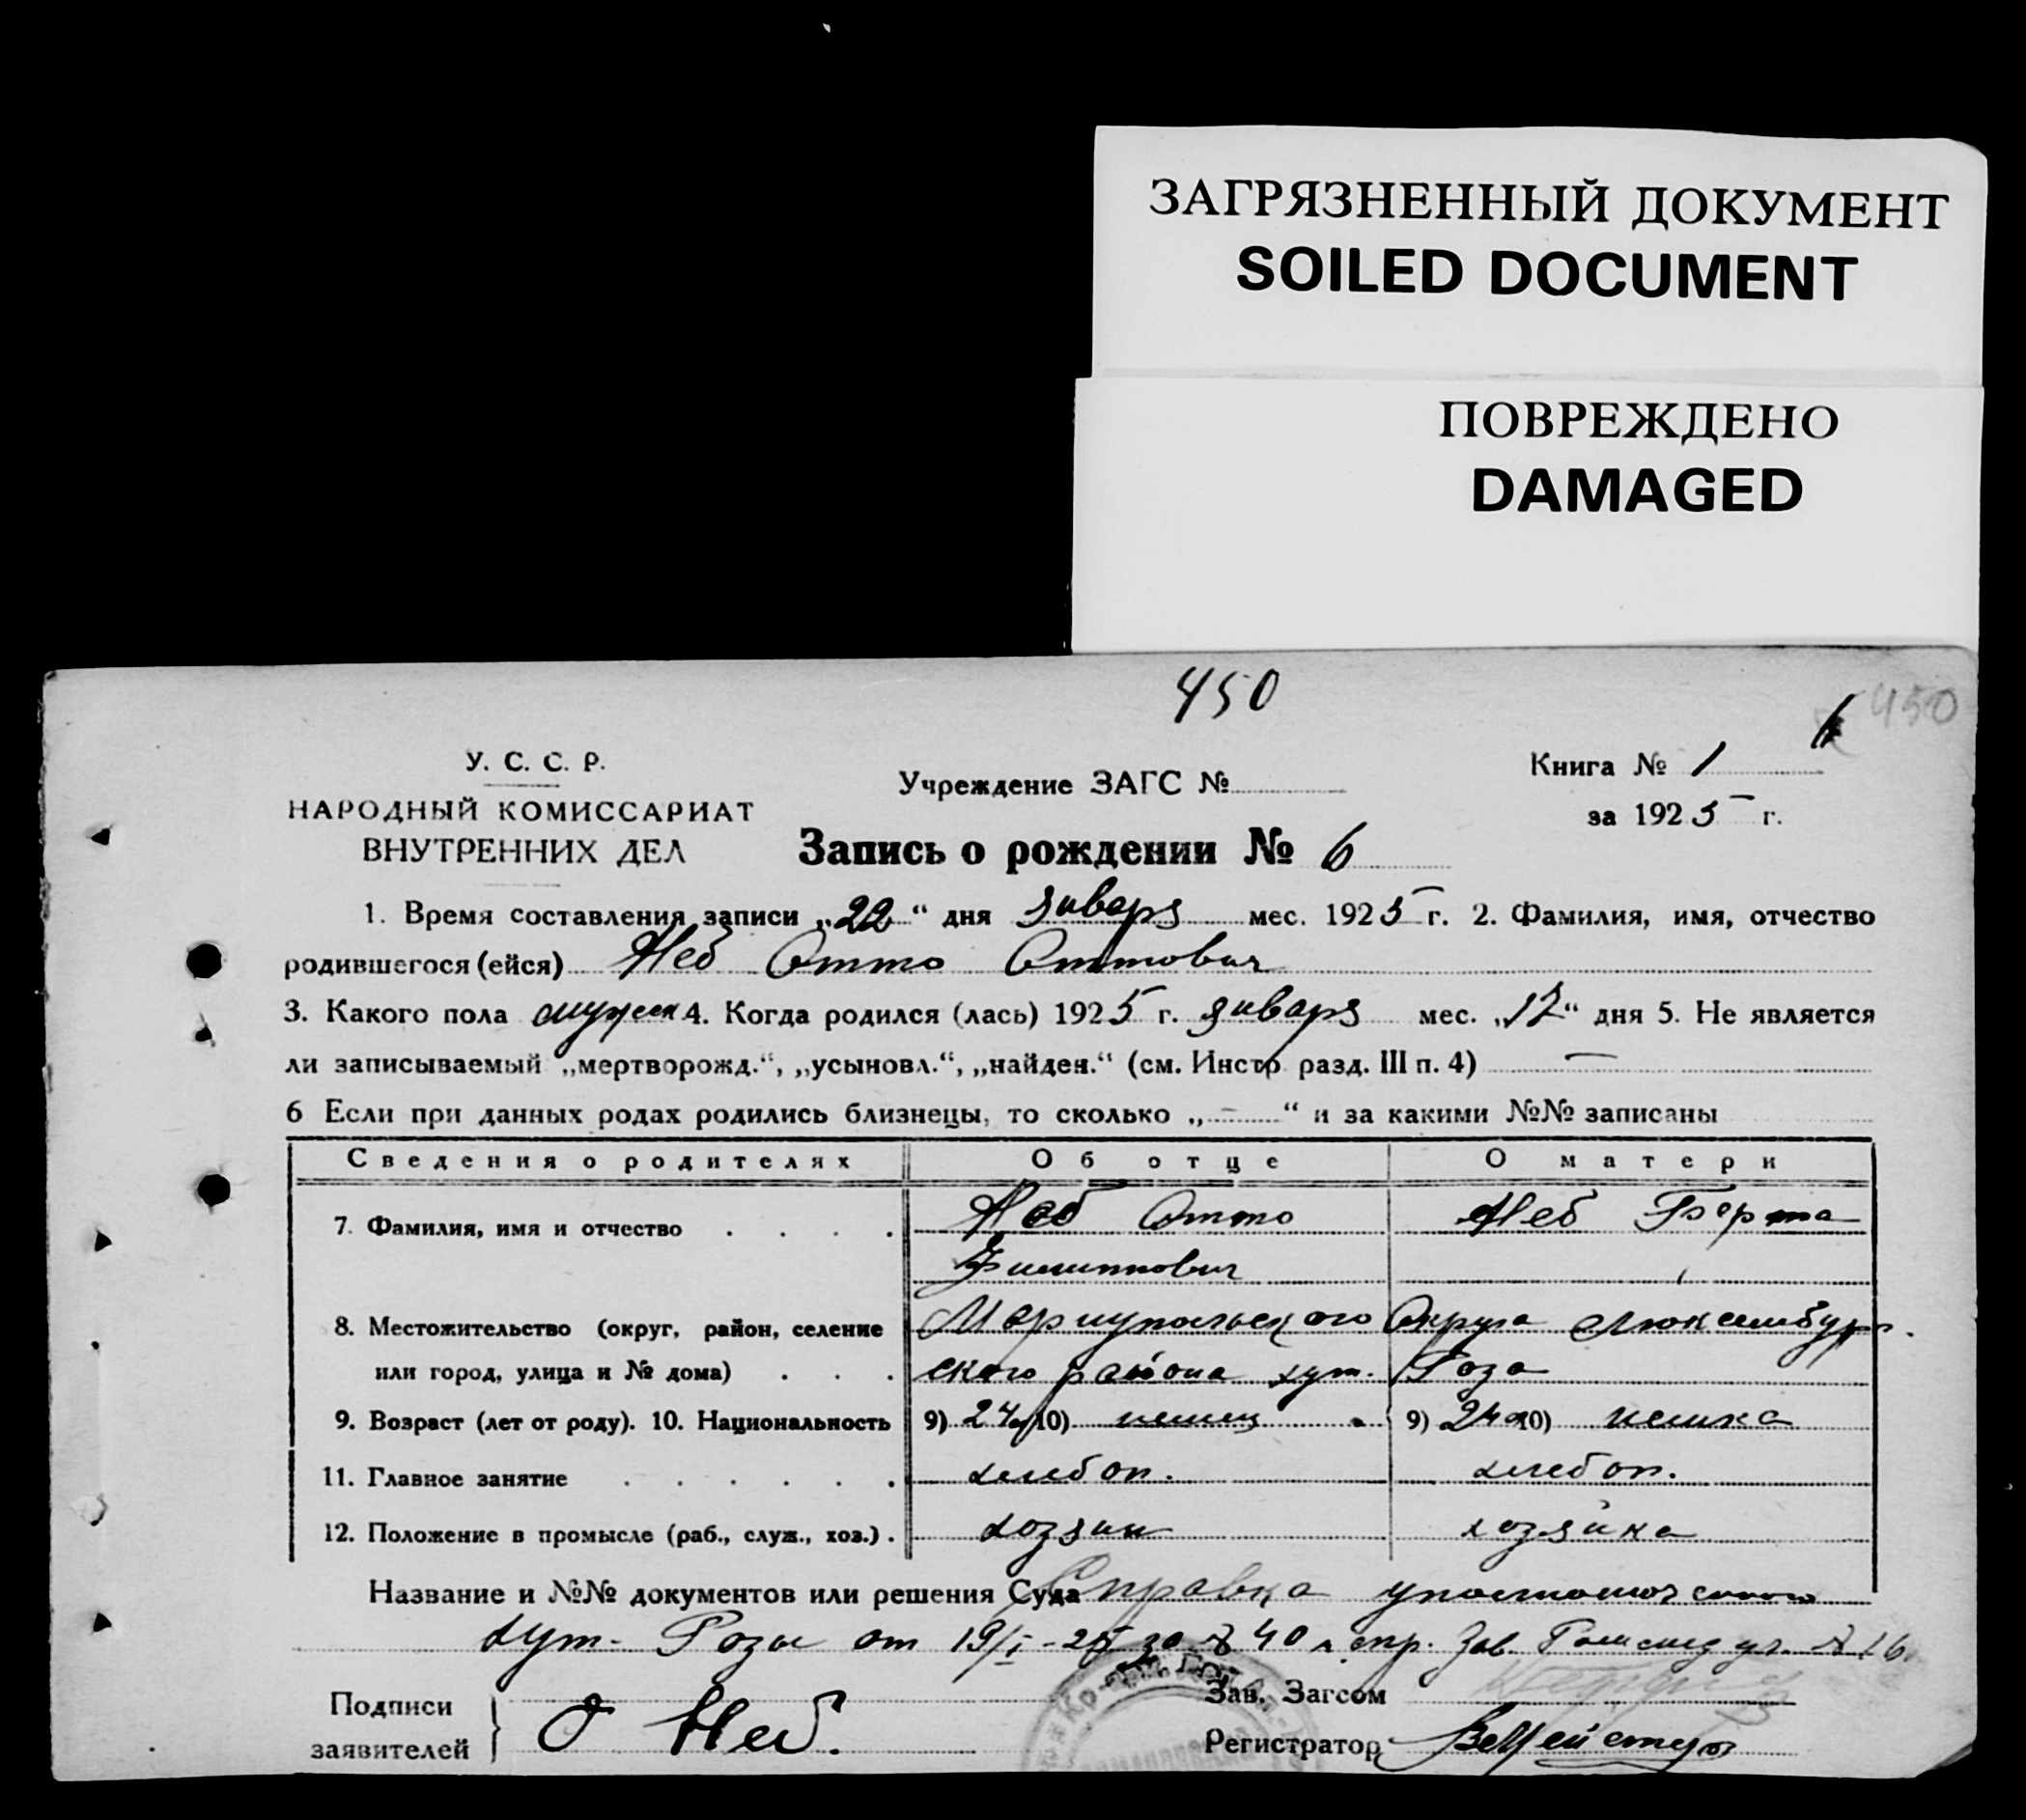 ЗАГРЯЗНЕННЫЙ ДОКУМЕНТ
SOILED DOCUMENT
ПОВРЕЖДЕНО
DAMAGED
450
6 450
У. С. С. Р.
НАРОДНЫЙ КОМИССАРИАТ
ВНУТРЕННИХ ДЕЛ
Учреждение ЗАГС №
Книга № 1
за 1925 г.
Запись о рождении № 6
1. Время составления записи „22“ дня январь мес. 1925 г. 2. Фамилия, имя, отчество
родившегося (ейся) Неб Отто Оттович
3. Какого пола мужск 4. Когда родился (лась) 1925 г. январь мес. „12“ дня 5. Не является
ли записываемый „мертворожд.“, „усыновл.“, „найден.“ (см. Инстр. разд. III п. 4) —
6 Если при данных родах родились близнецы, то сколько „—“ и за какими №№ записаны
Сведения о родителях Об отце О матери
7. Фамилия, имя и отчество Неб Отто Неб Берта
Филиппович
8. Местожительство (округ, район, селение Мариупольского Округа Люксембург-
или город, улица и № дома) ского района хут. Роза
9. Возраст (лет от роду). 10. Национальность 9) 24 10) немец 9) 24 10) немка
11. Главное занятие хлебоп. хлебоп.
12. Положение в промысле (раб., служ., хоз.) хозяин хозяйка
Название и №№ документов или решения Суда Справка
хут. Розы от 19/I-25 за № 40 и спр. Зав. уч. № 16
Подписи
заявителей
О Неб.
Зав. Загсом
Регистратор